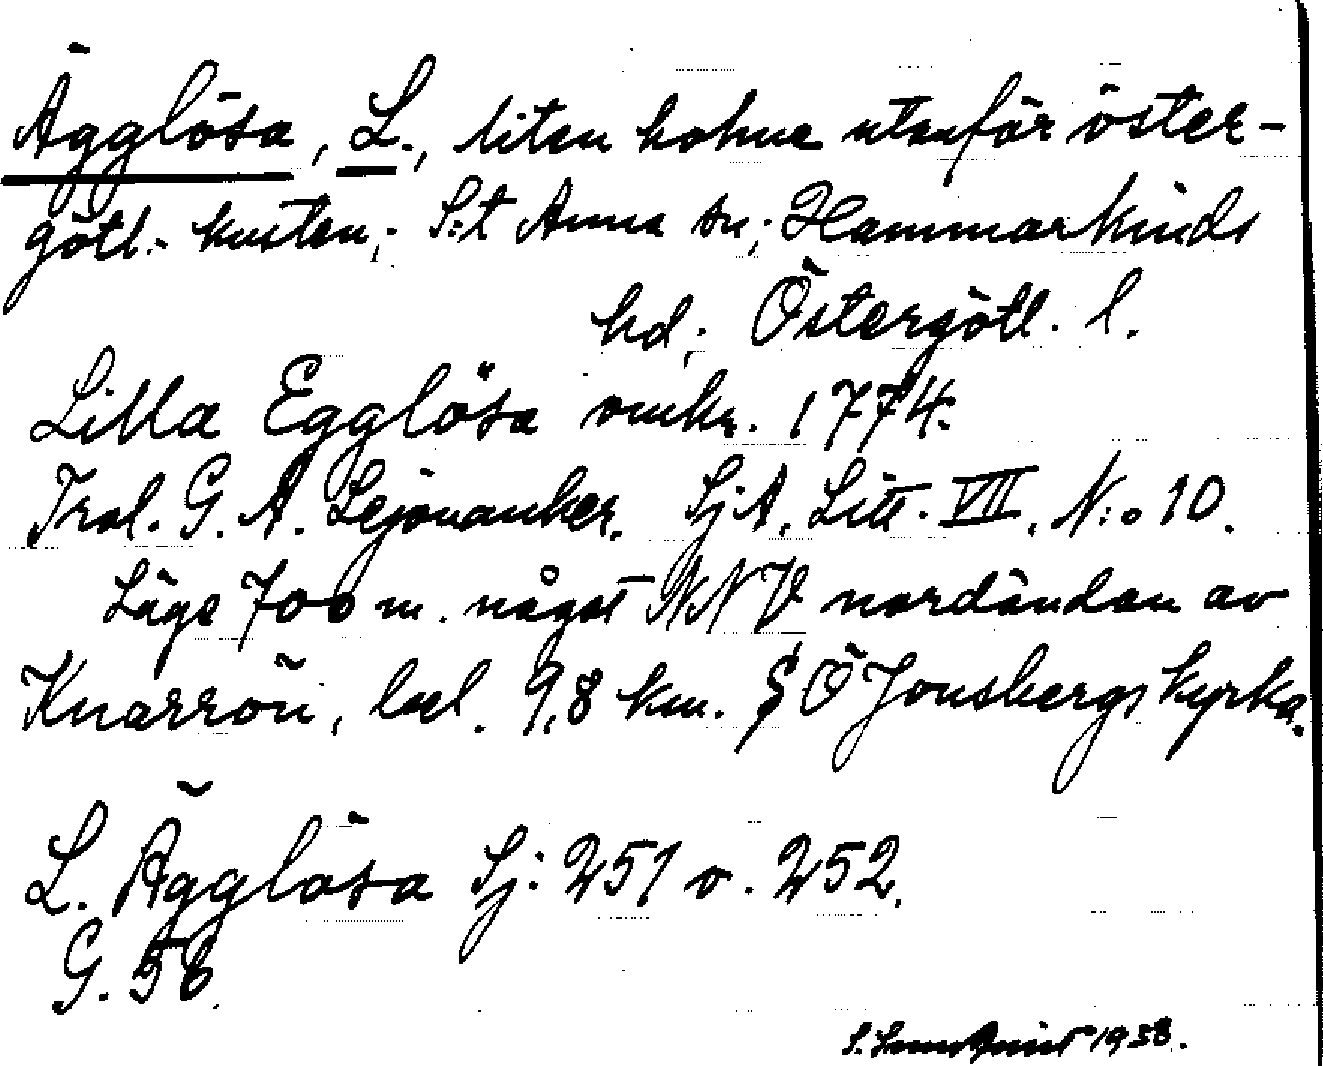 Ägglösa, L., liten holme utanför öster-
götl. kusten; S:t Anna sn; Hammarkinds
hd; Östergötl. l.
Lilla Egglösa omkr. 1774.
Trol. G. A. Lejonanker. SjA. Litt. VII, N:o 10.
Läge 700 m. något NNV nordändan av
Knarrön, bel. 9,8 km. SÖ Jonsbergs kyrka.
L. Ägglösa Sj: 251 o. 252.
G. 56
S. 1938.